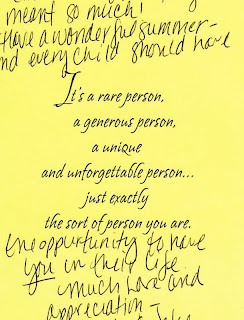 meant so much!
Have a wonderful summer-
and every child should have
It's a rare person,
a generous person,
a unique
and unforgettable person...
just exactly
the sort of person you are.
the opportunity to have
you in their life.
Much love and
appreciation -